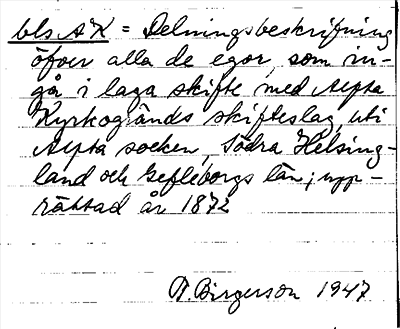 bls AK = Delningsbeskrifning
öfver alla de egor, som in-
gå i laga skifte med Alfta
Kyrkogränds skifteslag uti
Alfta socken, Södra Helsing-
land och Gefleborgs län; upp-
rättad år 1872
N. Birgerson 1947